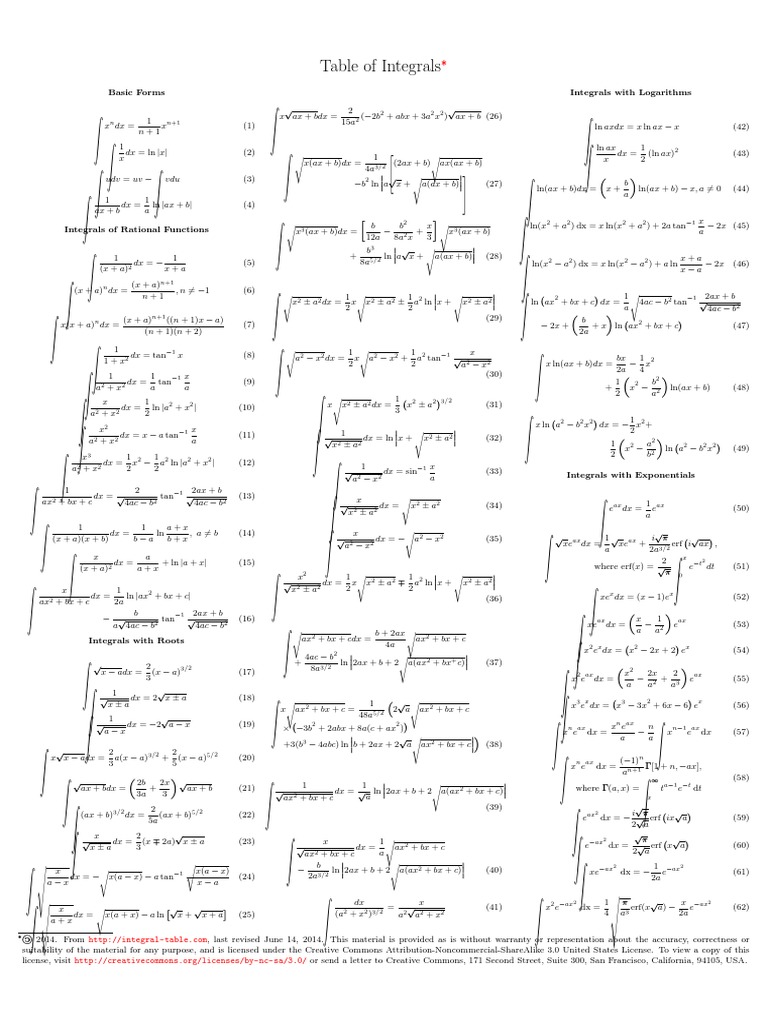 Table of Integrals*
Basic Forms
∫ xⁿ dx = 1/(n+1) xⁿ⁺¹ (1)
∫ 1/x dx = ln |x| (2)
∫ udv = uv − ∫ vdu (3)
∫ 1/(ax + b) dx = 1/a ln |ax + b| (4)
Integrals of Rational Functions
∫ 1/(x + a)² dx = − 1/(x + a) (5)
∫ (x + a)ⁿ dx = (x + a)ⁿ⁺¹/(n + 1), n ≠ −1 (6)
∫ x(x + a)ⁿ dx = (x + a)ⁿ⁺¹((n + 1)x − a)/((n + 1)(n + 2)) (7)
∫ 1/(1 + x²) dx = tan⁻¹ x (8)
∫ 1/(a² + x²) dx = 1/a tan⁻¹ x/a (9)
∫ x/(a² + x²) dx = 1/2 ln |a² + x²| (10)
∫ x²/(a² + x²) dx = x − a tan⁻¹ x/a (11)
∫ x³/(a² + x²) dx = 1/2 x² − 1/2 a² ln |a² + x²| (12)
∫ 1/(ax² + bx + c) dx = 2/√(4ac − b²) tan⁻¹ (2ax + b)/√(4ac − b²) (13)
∫ 1/((x + a)(x + b)) dx = 1/(b − a) ln (a + x)/(b + x), a ≠ b (14)
∫ x/(x + a)² dx = a/(a + x) + ln |a + x| (15)
∫ x/(ax² + bx + c) dx = 1/2a ln |ax² + bx + c|
− b/(a√(4ac − b²)) tan⁻¹ (2ax + b)/√(4ac − b²) (16)
Integrals with Roots
∫ √(x − a) dx = 2/3 (x − a)^(3/2) (17)
∫ 1/√(x ± a) dx = 2√(x ± a) (18)
∫ 1/√(a − x) dx = −2√(a − x) (19)
∫ x√(x − a) dx = 2/3 a(x − a)^(3/2) + 2/5 (x − a)^(5/2) (20)
∫ √(ax + b) dx = (2b/3a + 2x/3) √(ax + b) (21)
∫ (ax + b)^(3/2) dx = 2/5a (ax + b)^(5/2) (22)
∫ x/√(x ± a) dx = 2/3 (x ∓ 2a)√(x ± a) (23)
∫ √(x/(a − x)) dx = −√(x(a − x)) − a tan⁻¹ √(x(a − x))/(x − a) (24)
∫ √(x/(a + x)) dx = √(x(a + x)) − a ln [√x + √(x + a)] (25)
∫ x√(ax + b) dx = 2/15a² (−2b² + abx + 3a²x²)√(ax + b) (26)
∫ √(x(ax + b)) dx = 1/4a^(3/2) [(2ax + b)√(ax(ax + b))
−b² ln |a√x + √(a(ax + b))|] (27)
∫ √(x³(ax + b)) dx = [b/12a − b²/8a²x + x/3] √(x³(ax + b))
+ b³/8a^(5/2) ln |a√x + √(a(ax + b))| (28)
∫ √(x² ± a²) dx = 1/2 x√(x² ± a²) ± 1/2 a² ln |x + √(x² ± a²)|
(29)
∫ √(a² − x²) dx = 1/2 x√(a² − x²) + 1/2 a² tan⁻¹ x/√(a² − x²)
(30)
∫ x√(x² ± a²) dx = 1/3 (x² ± a²)^(3/2) (31)
∫ 1/√(x² ± a²) dx = ln |x + √(x² ± a²)| (32)
∫ 1/√(a² − x²) dx = sin⁻¹ x/a (33)
∫ x/√(x² ± a²) dx = √(x² ± a²) (34)
∫ x/√(a² − x²) dx = −√(a² − x²) (35)
∫ x²/√(x² ± a²) dx = 1/2 x√(x² ± a²) ∓ 1/2 a² ln |x + √(x² ± a²)|
(36)
∫ √(ax² + bx + c) dx = (b + 2ax)/4a √(ax² + bx + c)
+ (4ac − b²)/8a^(3/2) ln |2ax + b + 2√(a(ax² + bx + c))| (37)
∫ x√(ax² + bx + c) = 1/48a^(5/2) (2√a √(ax² + bx + c)
× (−3b² + 2abx + 8a(c + ax²))
+3(b³ − 4abc) ln |b + 2ax + 2√a √(ax² + bx + c)|) (38)
∫ 1/√(ax² + bx + c) dx = 1/√a ln |2ax + b + 2√(a(ax² + bx + c))|
(39)
∫ x/√(ax² + bx + c) dx = 1/a √(ax² + bx + c)
− b/2a^(3/2) ln |2ax + b + 2√(a(ax² + bx + c))| (40)
∫ dx/(a² + x²)^(3/2) = x/(a²√(a² + x²)) (41)
Integrals with Logarithms
∫ ln ax dx = x ln ax − x (42)
∫ ln ax/x dx = 1/2 (ln ax)² (43)
∫ ln(ax + b) dx = (x + b/a) ln(ax + b) − x, a ≠ 0 (44)
∫ ln(x² + a²) dx = x ln(x² + a²) + 2a tan⁻¹ x/a − 2x (45)
∫ ln(x² − a²) dx = x ln(x² − a²) + a ln (x + a)/(x − a) − 2x (46)
∫ ln (ax² + bx + c) dx = 1/a √(4ac − b²) tan⁻¹ (2ax + b)/√(4ac − b²)
− 2x + (b/2a + x) ln (ax² + bx + c) (47)
∫ x ln(ax + b) dx = bx/2a − 1/4 x²
+ 1/2 (x² − b²/a²) ln(ax + b) (48)
∫ x ln (a² − b²x²) dx = −1/2 x² +
1/2 (x² − a²/b²) ln (a² − b²x²) (49)
Integrals with Exponentials
∫ e^(ax) dx = 1/a e^(ax) (50)
∫ √x e^(ax) dx = 1/a √x e^(ax) + i√π/2a^(3/2) erf (i√(ax)),
where erf(x) = 2/√π ∫₀ˣ e^(−t²) dt (51)
∫ xeˣ dx = (x − 1)eˣ (52)
∫ xe^(ax) dx = (x/a − 1/a²) e^(ax) (53)
∫ x²eˣ dx = (x² − 2x + 2) eˣ (54)
∫ x²e^(ax) dx = (x²/a − 2x/a² + 2/a³) e^(ax) (55)
∫ x³eˣ dx = (x³ − 3x² + 6x − 6) eˣ (56)
∫ xⁿe^(ax) dx = xⁿe^(ax)/a − n/a ∫ xⁿ⁻¹e^(ax) dx (57)
∫ xⁿe^(ax) dx = (−1)ⁿ/aⁿ⁺¹ Γ[1 + n, −ax],
where Γ(a, x) = ∫ₓ^∞ t^(a−1)e^(−t) dt (58)
∫ e^(ax²) dx = − i√π/2√a erf (ix√a) (59)
∫ e^(−ax²) dx = √π/2√a erf (x√a) (60)
∫ xe^(−ax²) dx = − 1/2a e^(−ax²) (61)
∫ x²e^(−ax²) dx = 1/4 √(π/a³) erf(x√a) − x/2a e^(−ax²) (62)
*© 2014. From http://integral-table.com, last revised June 14, 2014. This material is provided as is without warranty or representation about the accuracy, correctness or
suitability of the material for any purpose, and is licensed under the Creative Commons Attribution-Noncommercial-ShareAlike 3.0 United States License. To view a copy of this
license, visit http://creativecommons.org/licenses/by-nc-sa/3.0/ or send a letter to Creative Commons, 171 Second Street, Suite 300, San Francisco, California, 94105, USA.